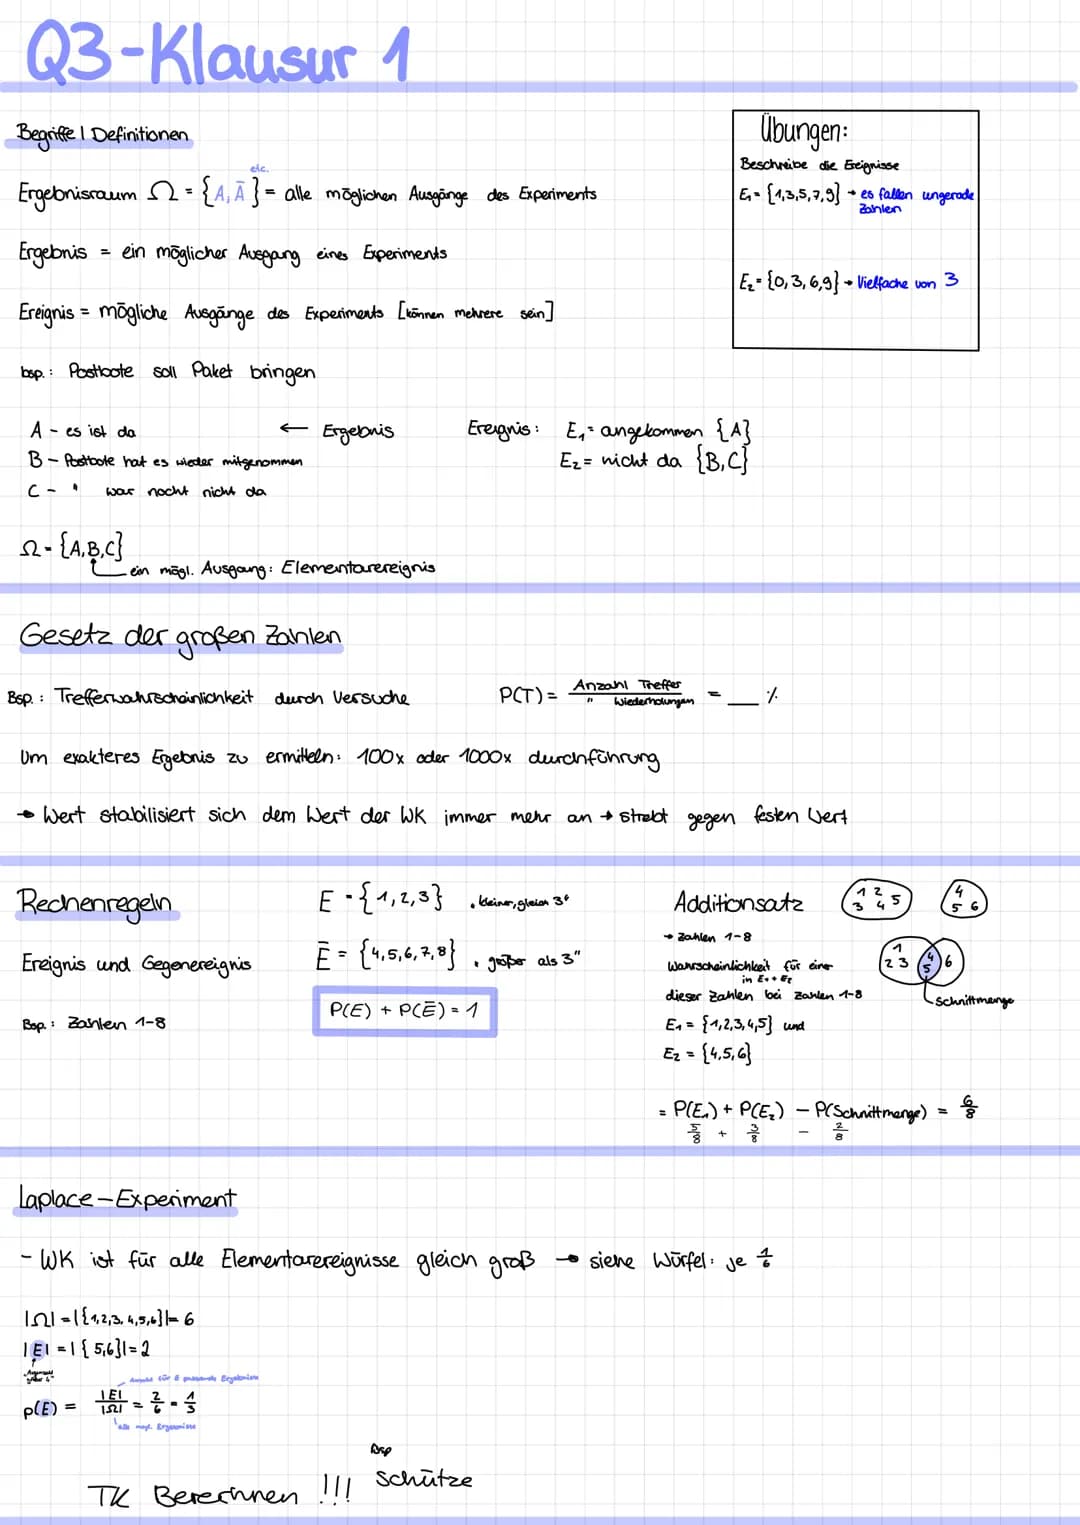 Q3-Klausur 1
Begriffe | Definitionen
etc.
Ergebnisraum Ω = {A, Ā} = alle möglichen Ausgänge des Experiments
Ergebnis = ein möglicher Ausgang eines Experiments
Ereignis = mögliche Ausgänge des Experiments [können mehrere sein]
bsp.: Postbote soll Paket bringen
A - es ist da ← Ergebnis
B - Postbote hat es wieder mitgenommen
C - " war nocht nicht da
Ereignis: E₁ = angekommen {A}
E₂ = nicht da {B,C}
Ω = {A,B,C}
ein mögl. Ausgang: Elementarereignis
Übungen:
Beschreibe die Ereignisse
E₁ = {1,3,5,7,9} → es fallen ungerade
Zahlen
E₂ = {0,3,6,9} → Vielfache von 3
Gesetz der großen Zahlen
Bsp.: Trefferwahrscheinlichkeit durch Versuche P(T) = Anzahl Treffer / " Wiederholungen = __ %
Um exakteres Ergebnis zu ermitteln: 100x oder 1000x durchführung
→ Wert stabilisiert sich dem Wert der WK immer mehr an → strebt gegen festen Wert
Rechenregeln
Ereignis und Gegenereignis
Bsp.: Zahlen 1-8
E = {1,2,3} „kleiner, gleich 3"
Ē = {4,5,6,7,8} „größer als 3"
P(E) + P(Ē) = 1
Additionsatz
→ Zahlen 1-8
Wahrscheinlichkeit für eine
in E₁ + E₂
dieser Zahlen bei Zahlen 1-8
E₁ = {1,2,3,4,5} und
E₂ = {4,5,6}
1 2
3 4 5
4
5 6
1
2 3
4
5
6
Schnittmenge
= P(E₁) + P(E₂) - P(Schnittmenge) = 6/8
5/8 + 3/8 - 2/8
Laplace-Experiment
- WK ist für alle Elementarereignisse gleich groß → siehe Würfel: je 1/6
|Ω| = |{1,2,3,4,5,6}| = 6
|E| = |{5,6}| = 2
Anzahl für E passende Ergebnisse
p(E) = |E|/|Ω| = 2/6 = 1/3
alle mögl. Ergebnisse
Bsp
TK Berechnen !!! Schütze